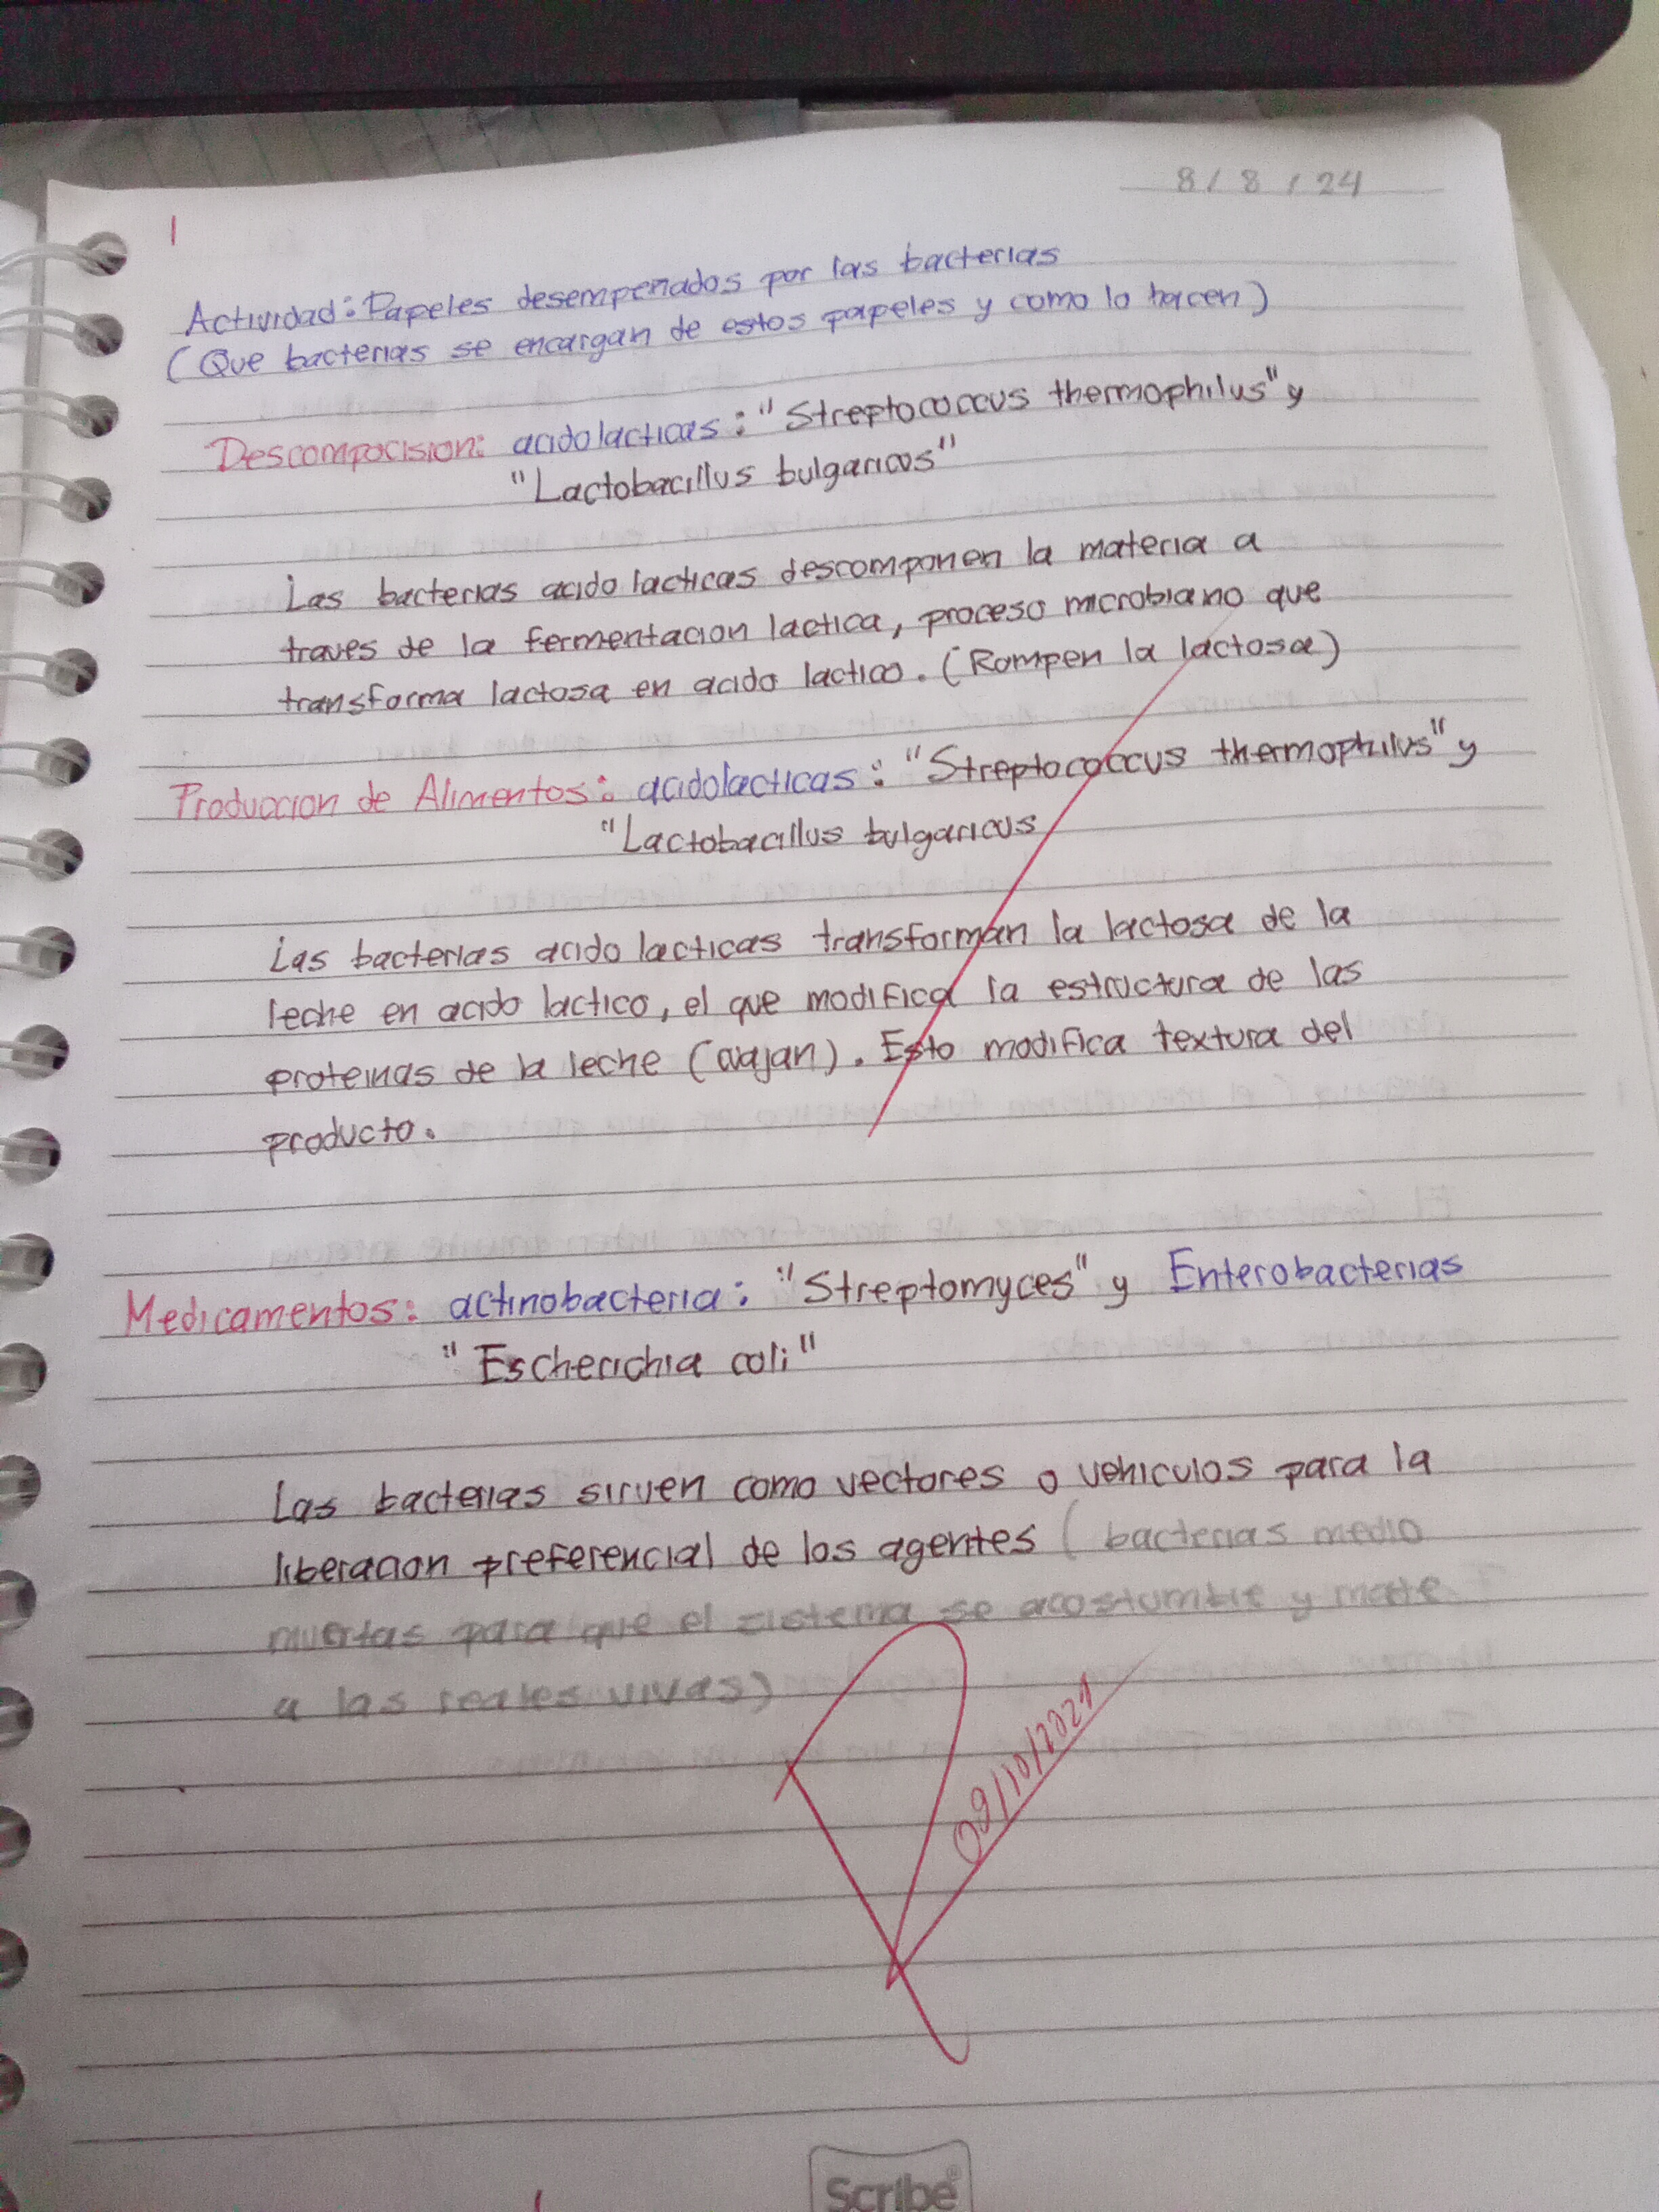 8 / 8 / 24
1
Actividad: Papeles desempeñados por las bacterias
(Que bacterias se encargan de estos papeles y como lo hacen)
Descompocision: acidolacticas: "Streptococcus thermophilus" y
"Lactobacillus bulgaricos"
Las bacterias acido lacticas descomponen la materia a
traves de la fermentacion lactica, proceso microbiano que
transforma lactosa en acido lactico. (Rompen la lactosa)
Produccion de Alimentos: acidolacticas: "Streptococcus thermophilus" y
"Lactobacillus bulgaricus
Las bacterias acido lacticas transforman la lactosa de la
leche en acido lactico, el que modifica la estructura de las
proteinas de la leche (cuajan). Esto modifica textura del
producto.
Medicamentos: actinobacteria: "Streptomyces" y Enterobacterias
"Escherichia coli"
Las bacterias sirven como vectores o vehiculos para la
liberacion preferencial de los agentes (bacterias medio
muertas para que el sistema se acostumbre y mate
a las reales vivas)
09/10/2024
Scribe